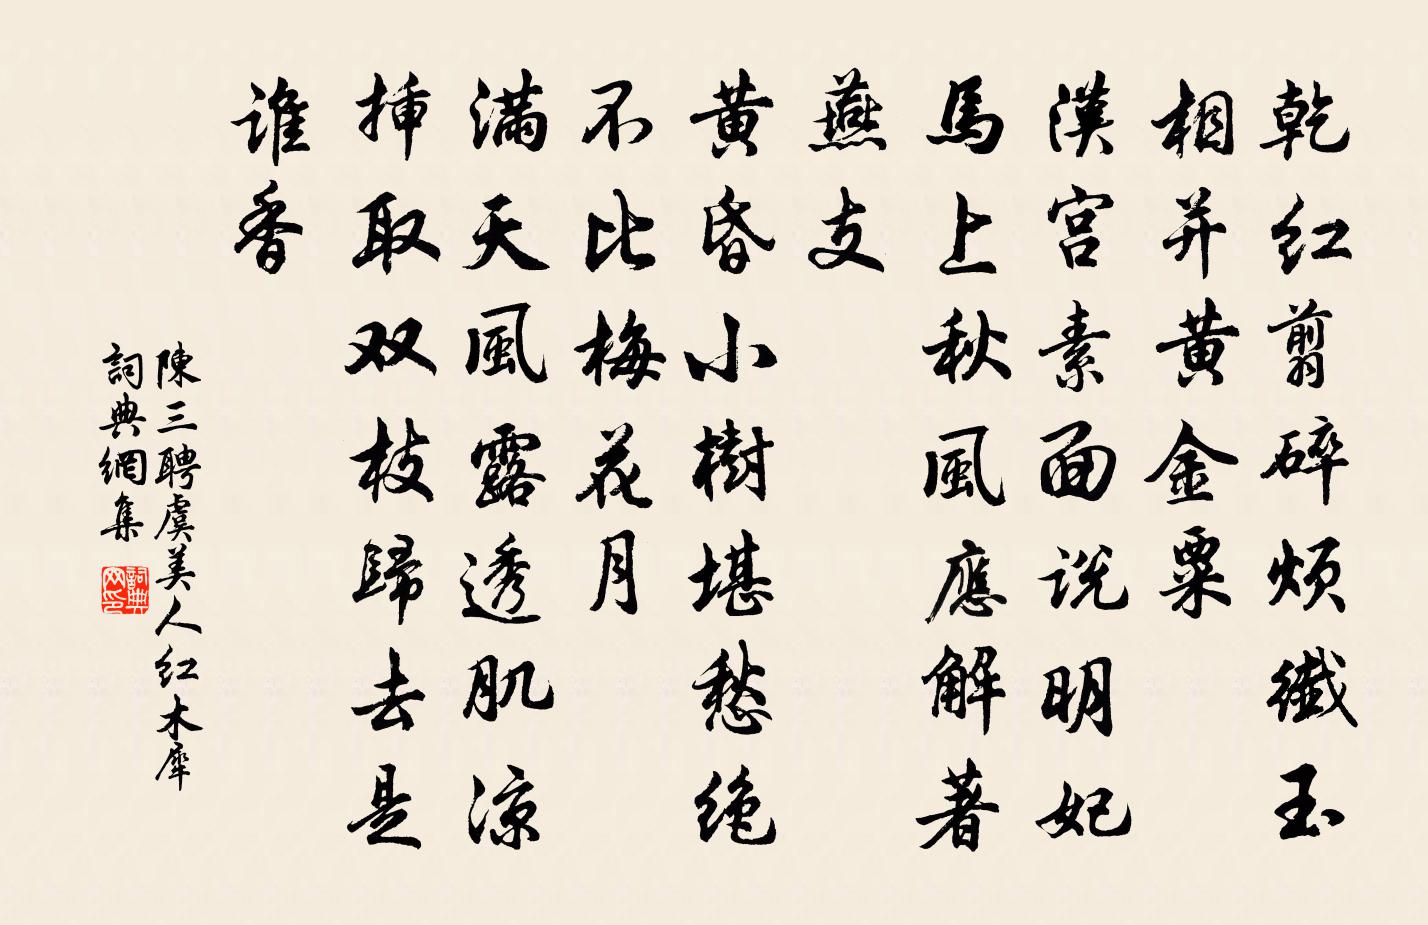 乾红翦碎烦纖玉
相并黄金粟
漢宫素面说明妃
馬上秋風應解著
燕支
黄昏小樹堪愁绝
不比梅花月
滿天風露透肌凉
挿取双枝歸去是
谁香
陳三聘虞美人红木犀
詞典網集
詞典網印